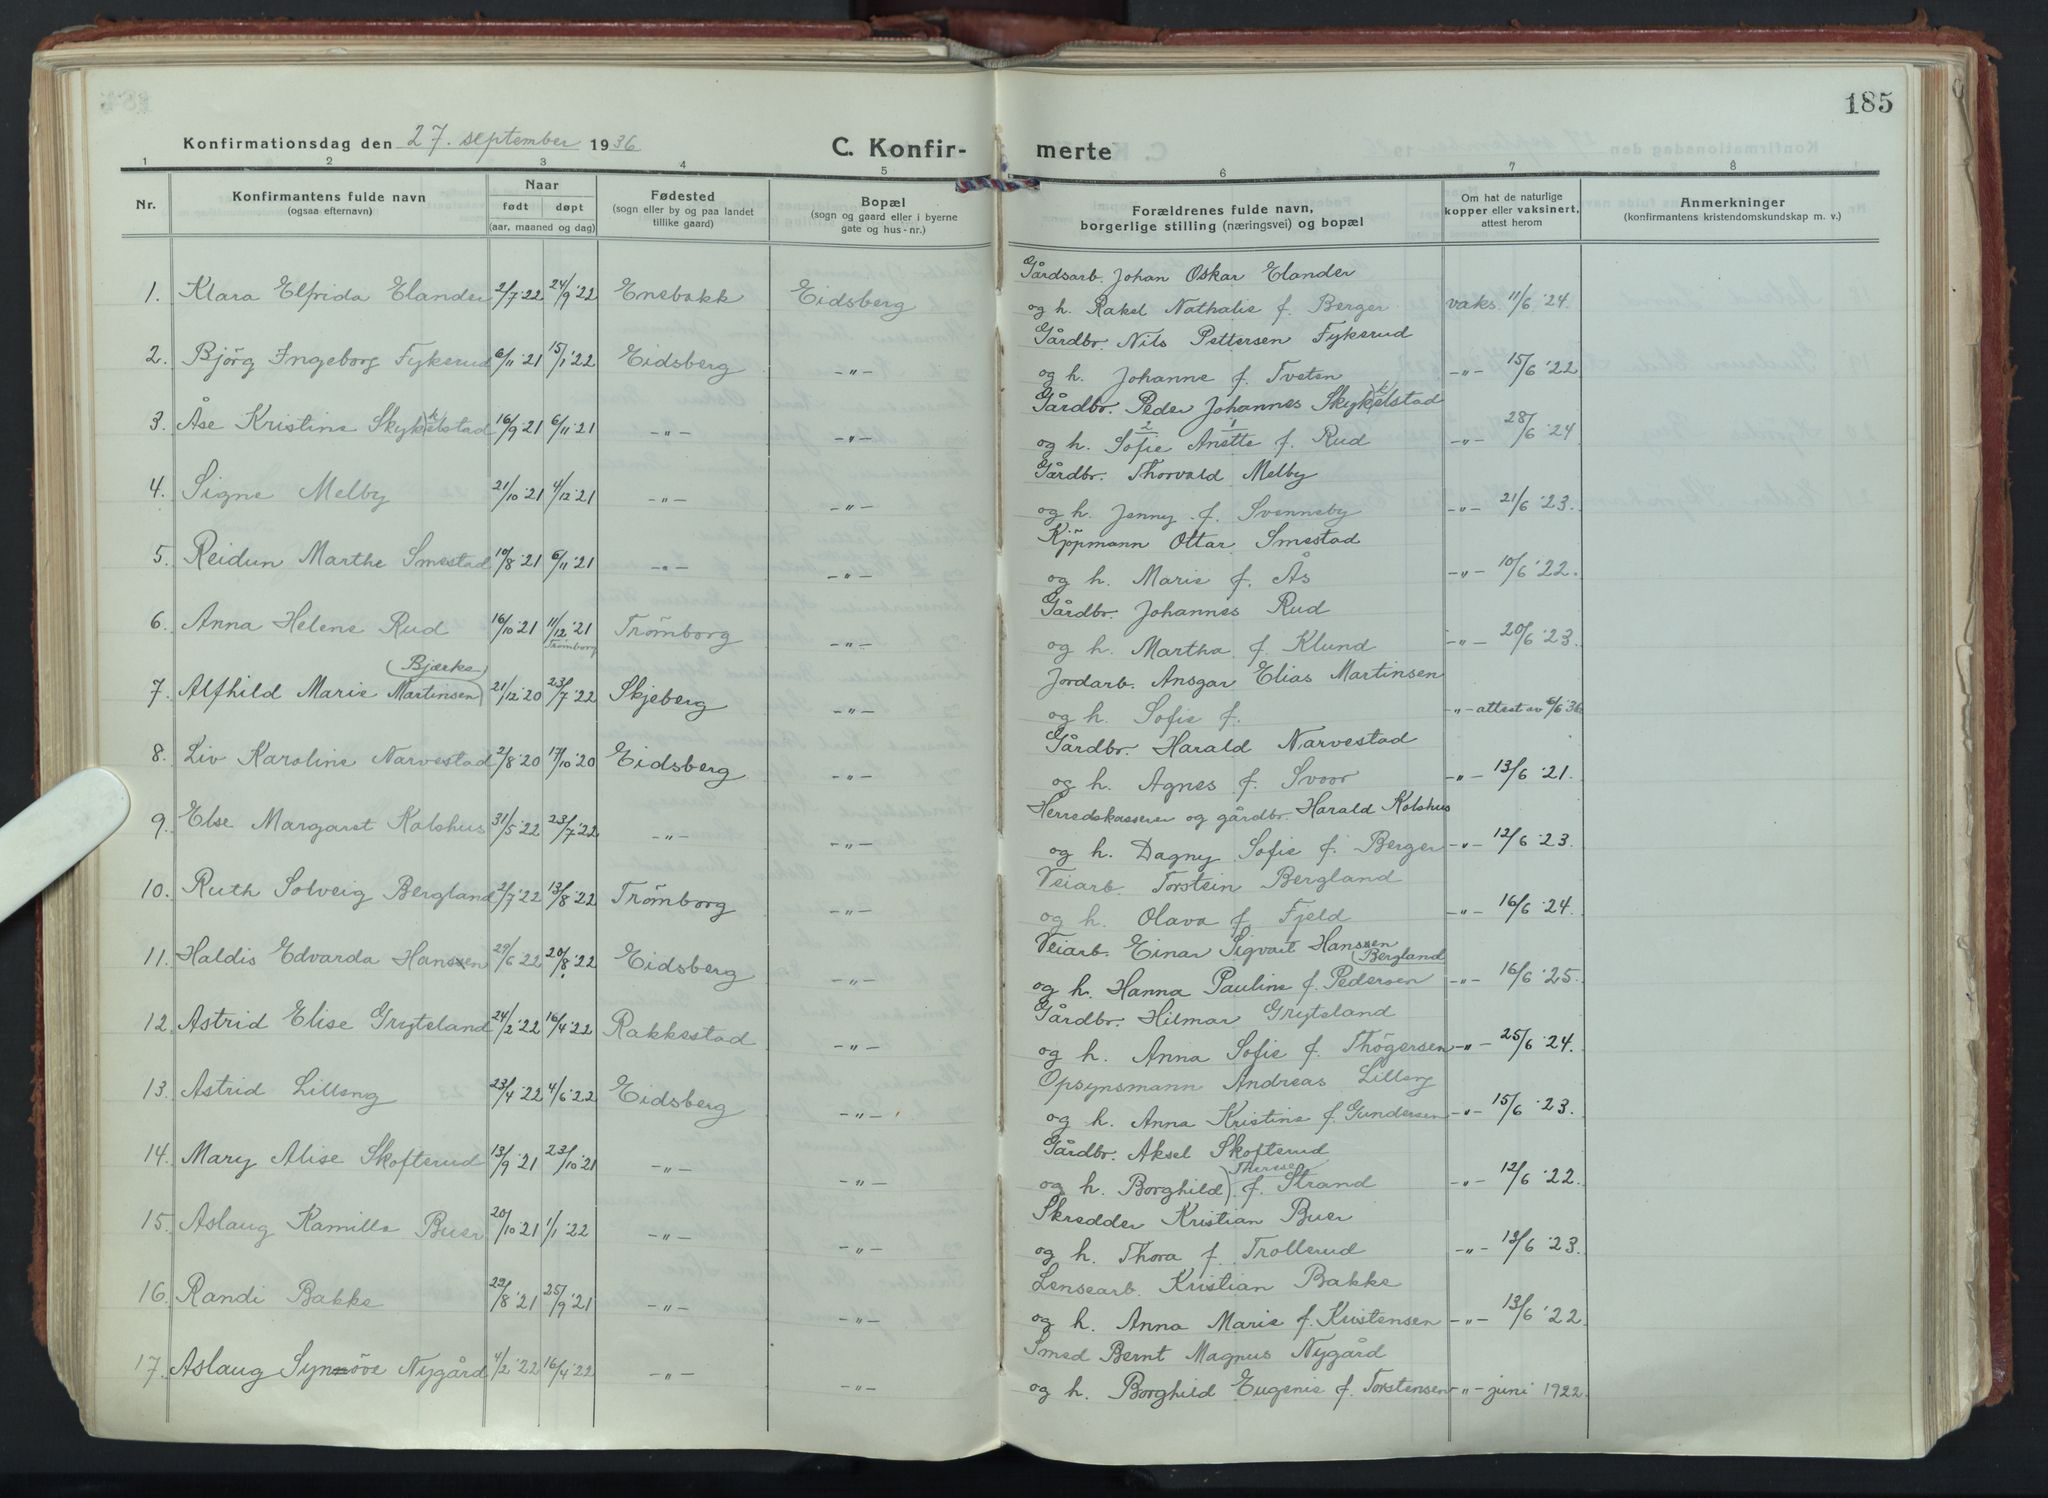 185
Konfirmationsdag den 27. september 1936
C. Konfir- merte
1 2 3 4 5 6 7 8
Nr.
Konfirmantens fulde navn
(ogsaa efternavn)
Naar
født døpt
(aar, maaned og dag)
Fødested
(sogn eller by og paa landet
tillike gaard)
Bopæl
(sogn og gaard eller i byerne
gate og hus-nr.)
Forældrenes fulde navn,
borgerlige stilling (næringsvei) og bopæl
Om hat de naturlige
kopper eller vaksinert,
attest herom
Anmerkninger
(konfirmantens kristendomskundskap m. v.)
Gårdsarb. Johan Oskar Elander
1. Klara Elfrida Elander 2/7 '22 24/9 '22 Enebakk Eidsberg og h. Rakel Nathalie f. Berger vaks. 11/6 '24.
Gårdbr. Nils Pettersen Fykerud
2. Bjørg Ingeborg Fykerud 6/11 '21 15/1 '22 Eidsberg -"- og h. Johanne f. Tveten -"- 15/6 '22
Gårdbr. Peder Johannes Skykkelstad
3. Åse Kristine Skykkelstad 16/9 '21 6/11 '21 -"- -"- og h. Sofie Anette f. Rud -"- 28/6 '24
2 1
Gårdbr. Thorvald Melby
4. Signe Melby 21/10 '21 4/12 '21 -"- -"- og h. Jenny f. Svenneby -"- 21/6 '23.
Kjøpmann Ottar Smestad
5. Reidun Marthe Smestad 10/8 '21 6/11 '21 -"- -"- og h. Marie f. Ås -"- 10/6 '22.
Gårdbr. Johannes Rud
6. Anna Helene Rud 16/10 '21 11/12 '21 Trømborg -"- og h. Martha f. Klund -"- 20/6 '23.
Trømborg
(Bjærke)
Jordarb. Ansgar Elias Martinsen
7. Alfhild Marie Martinsen) 21/12 '20 23/7 '22 Skjeberg -"- og h. Sofie f. -"- attest av 6/6 '36
Gårdbr. Harald Narvestad
8. Liv Karoline Narvestad 2/8 '20 17/10 '20 Eidsberg -"- og h. Agnes f. Svoor -"- 13/6 '21.
Herredskasserer og gårdbr. Harald Kolshus
9. Else Margaret Kolshus 31/5 '22 23/7 '22 -"- -"- og h. Dagny Sofie f. Berger -"- 12/6 '23.
Veiarb. Torstein Bergland
10. Ruth Solveig Bergland 2/7 '22 13/8 '22 Trømborg -"- og h. Olava f. Fjeld -"- 16/6 '24.
Veiarb. Einar Sigvart Hansen
(Bergland
11. Haldis Edvarda Hansen 29/6 '22 20/8 '22 Eidsberg -"- og h. Hanna Pauline f. Pedersen -"- 16/6 '25.
Gårdbr. Hilmar Gryteland
12. Astrid Elise Gryteland 24/2 '22 16/4 '22 Rakkestad -"- og h. Anna Sofie f. Thøgersen -"- 25/6 '24.
Opsynsmann Andreas Lilleng
13. Astrid Lilleng 23/4 '22 4/6 '22 Eidsberg -"- og h. Anna Kristine f. Gundersen -"- 15/6 '23.
Gårdbr. Aksel Skofterud
Therese
14. Mary Alise Skofterud 13/9 '21 23/10 '21 -"- -"- og h. Borghild) f. Strand -"- 12/6 '22.
Skredder Kristian Buer
15. Aslaug Kamilla Buer 20/10 '21 1/1 '22 -"- -"- og h. Thora f. Trollerud -"- 13/6 '23.
Lensearb. Kristian Bakke
16. Randi Bakke 29/8 '21 25/9 '21 -"- -"- og h. Anna Marie f. Kristensen -"- 13/6 '22
Smed Bernt Magnus Nygård
17. Aslaug Synnøve Nygård 4/2 '22 16/4 '22 -"- -"- og h. Borghild Eugenie f. Torstensen -"- juni 1922.